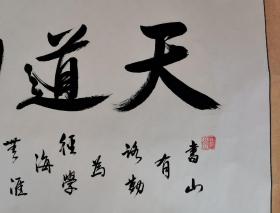 天道
書山
有
路勤
為
径學
海
無涯